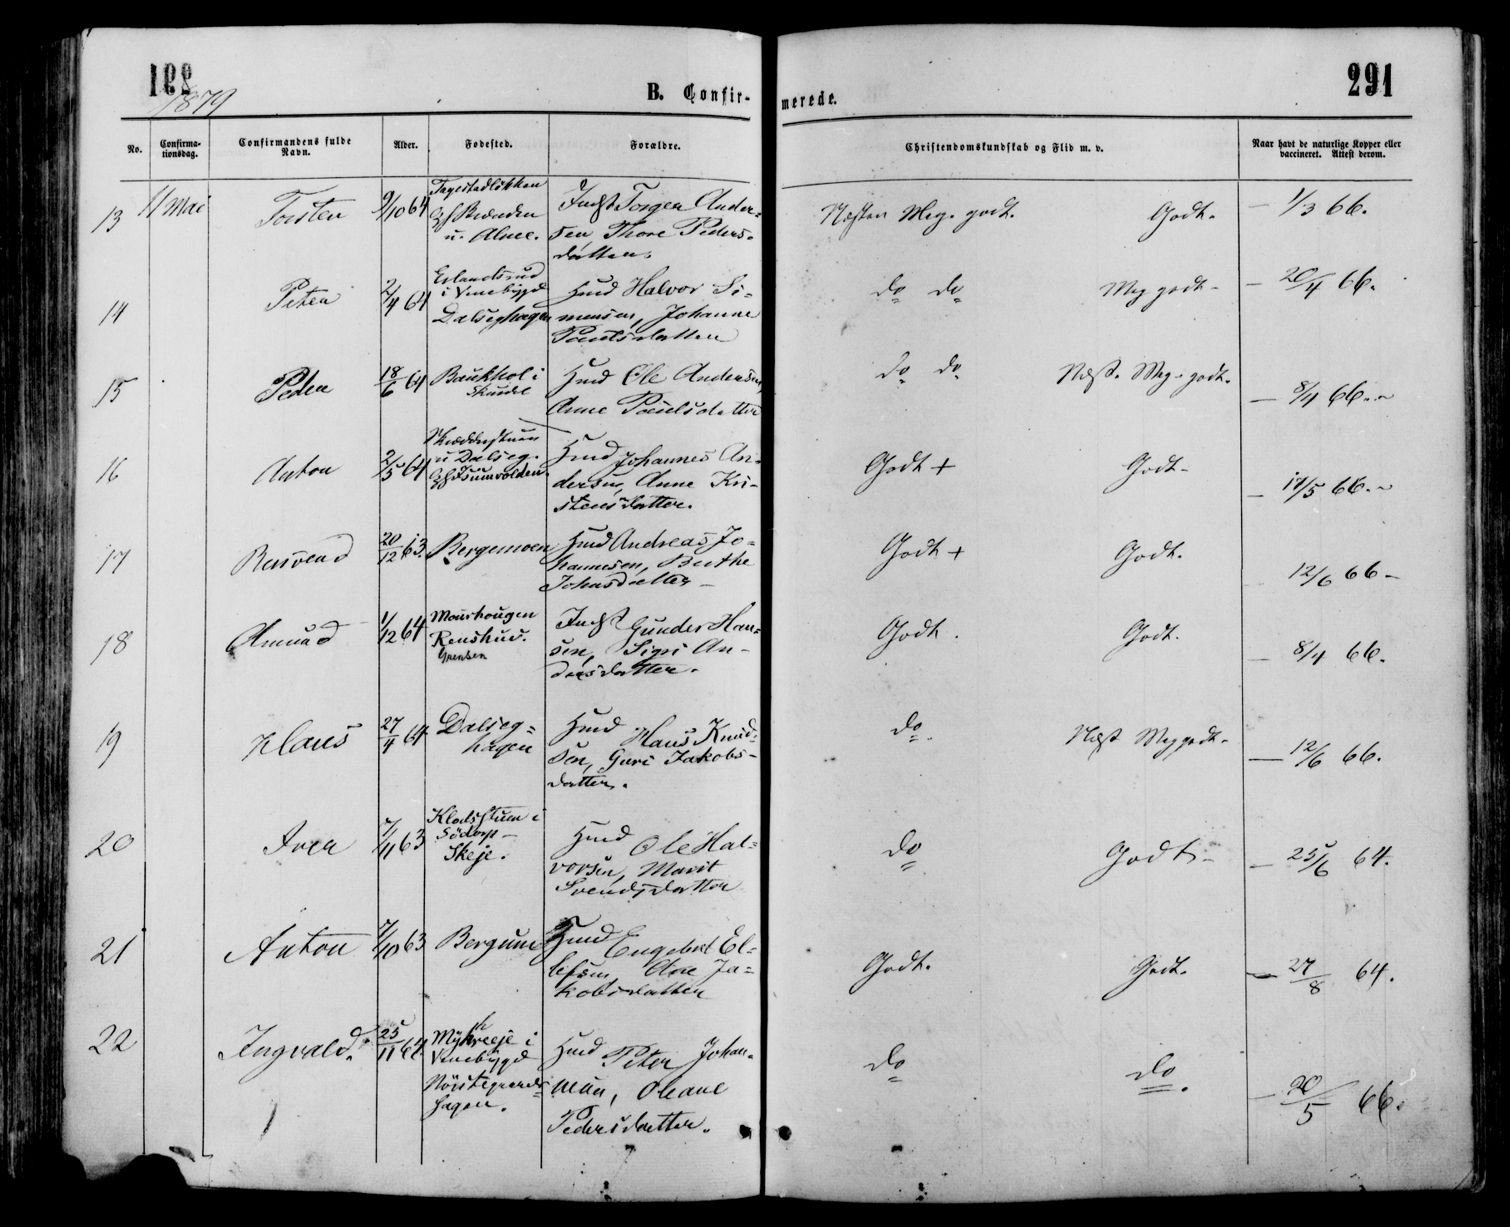 291
1879
B. Confir-
merede.
291
No.
Confirma-
tionsdag.
Confirmandens fulde
Navn.
Alder.
Fødested.
Forældre.
Christendomskundskab og Flid m. v.
Naar havt de naturlige Kopper eller
vaccineret. Attest derom.
13 11 Mai Torsten 9/10 64
u. Alme.
Indst Torger Ander-
sen Thore Peders-
datter.
Næsten Meg. godt. Godt. — 1/3 66.
14 Peter 2/4 64
i Vinebygd
Dalseghagen
Hmd Halvor Si-
mensen, Johanne
Poulsdatter
do do Meg godt - — 20/4 66.
15 Peder 18/6 64 Baukhol i
Hmd Ole Andersen,
Anne Poulsdatter
do do Næst. Meg. godt. — 8/4 66.
16 Anton 2/5 64
u Dalseg.
Hmd Johannes An-
dersen, Anne Kri-
stensdatter.
Godt + Godt - — 17/5 66.
17 20/12 63. Bergemoen
Hmd Andreas Jo-
hannesen, Berthe
Johnsdatter —
Godt + Godt. 12/6 66 -
18 Amund 1/12 64
Indst Gunder Han-
sen, Sigri An-
dersdatter.
Godt. Godt. — 8/4 66.
19 Klaus 27/4 64 Dalseg-
hagen
Hmd Hans Knud-
sen, Guri Jakobs-
datter.
do. Næst Meg godt - — 12/6 66.
20 Iver 7/11 63 Klodsstuen i
Sødorp -
Skeje.
Hmd Ole Hal-
vorsen, Marit
Svendsdatter
do Godt - — 25/6 64.
21 Anton 7/10 63 Bergum
Hmd Engebret El-
lefsen, Ane Ja-
kobsdatter
Godt. Godt. — 27/8 64.
22 Ingvald. 25/11 64
Vinebygd
hagen.
Hmd Peter Johan-
Oleane
Pedersdatter.
do do. — 20/5 66.